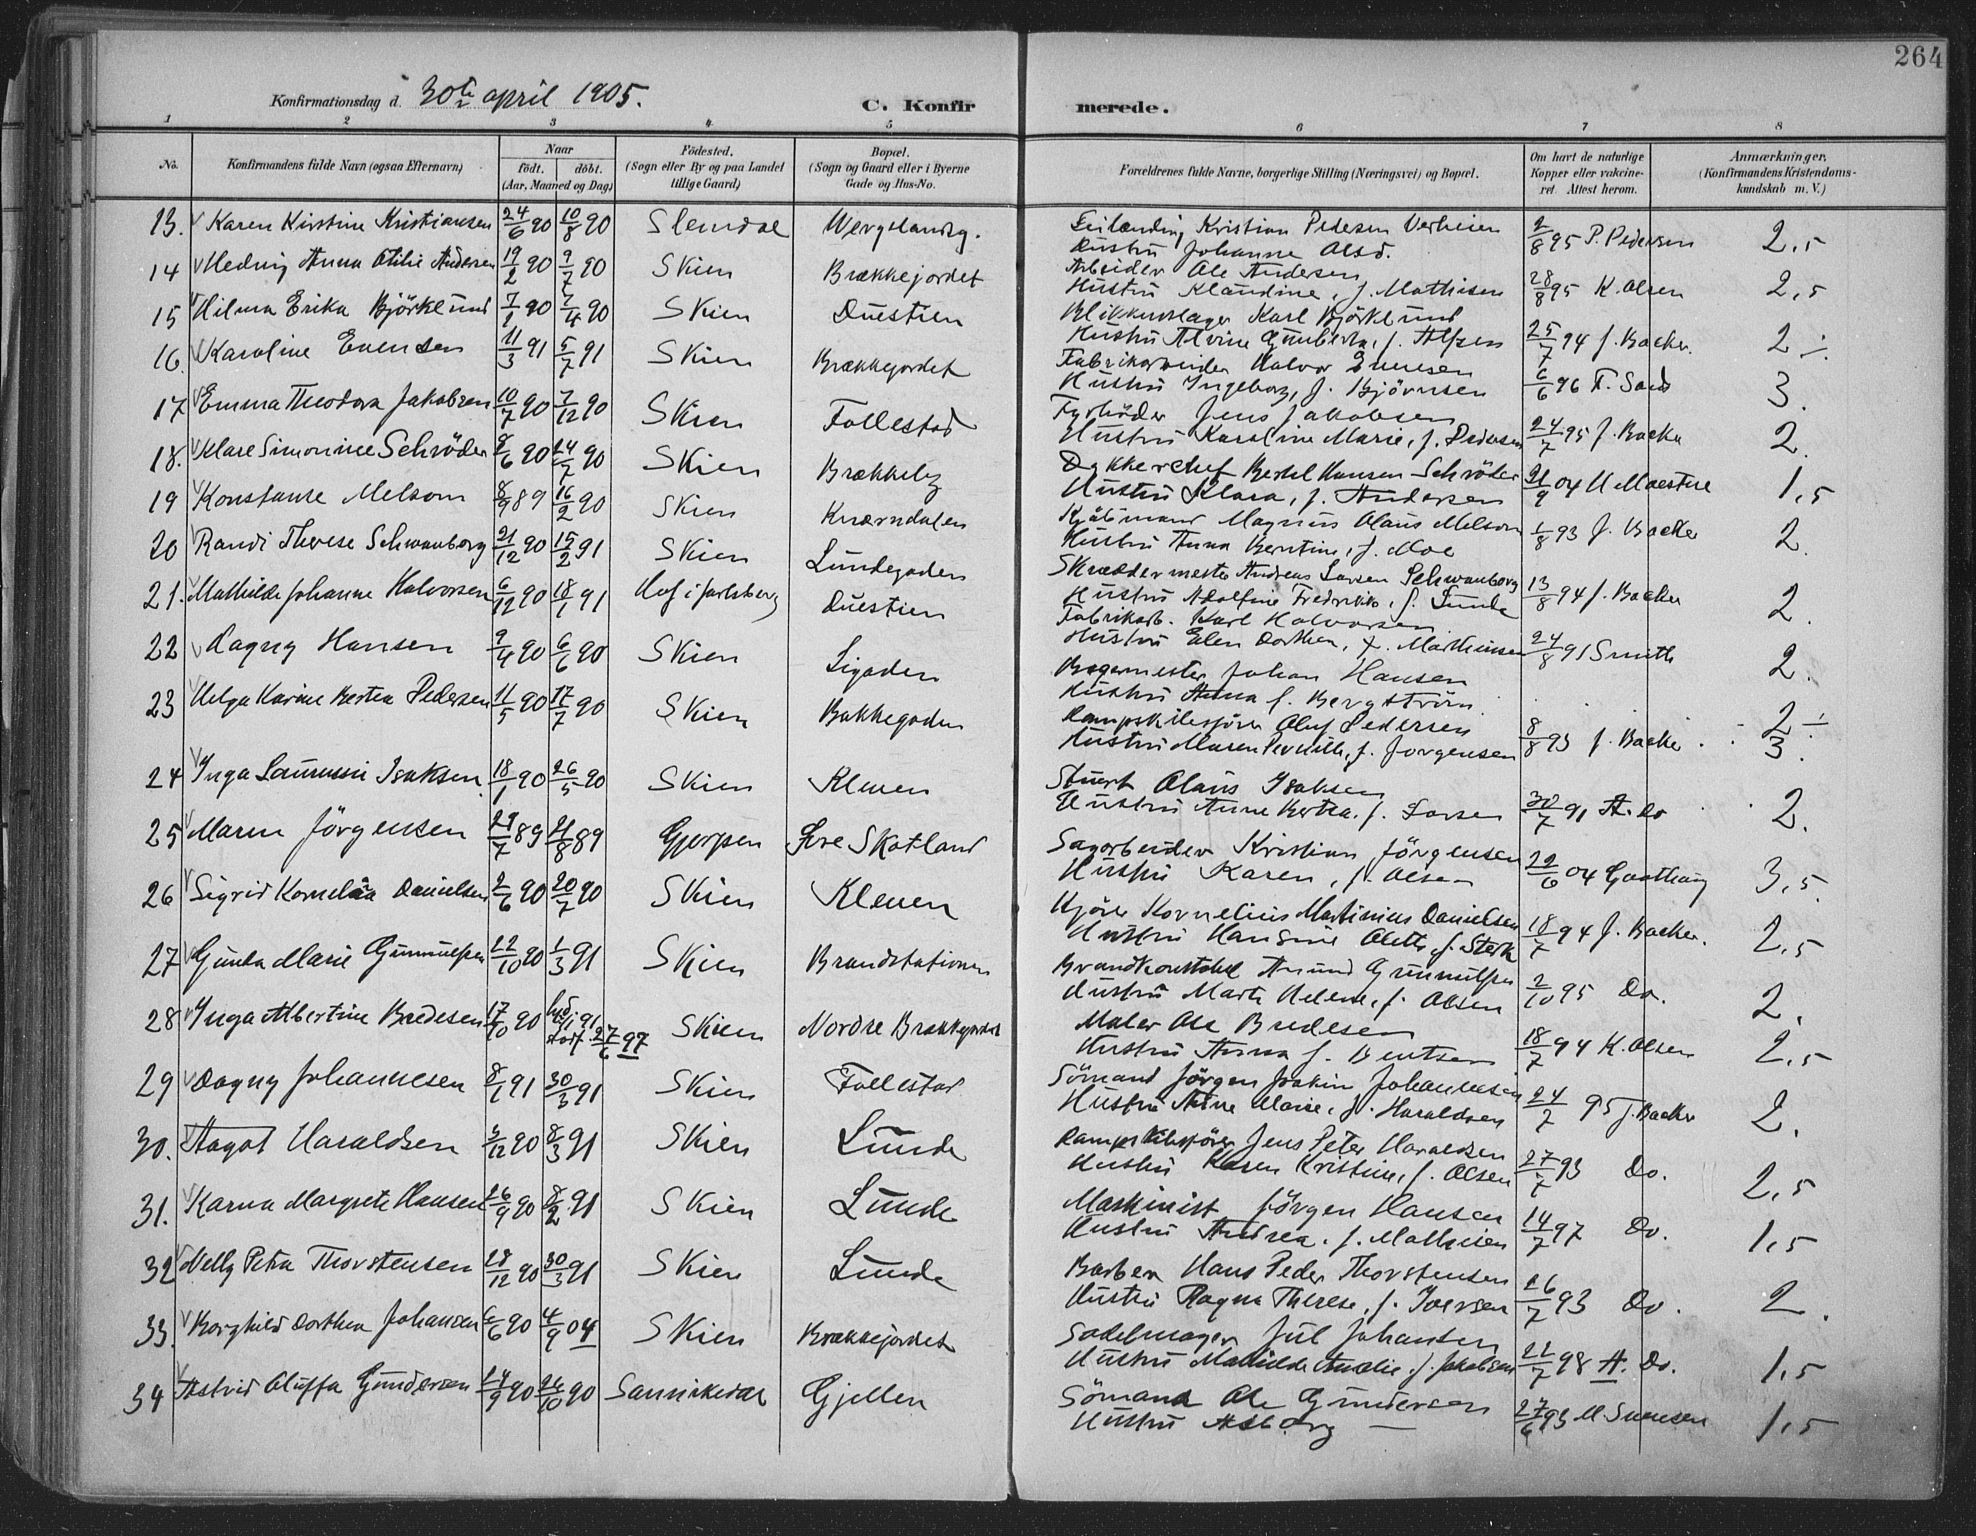 264
Konfirmationsdag d. 30te april 1905.
C. Konfirmerede.
1 2 3 4 5 6 7 8
No. Konfirmandens fulde Navn (ogsaa Efternavn) Naar født. døbt. (Aar, Maaned og Dag) Fødested. (Sogn eller By og paa Landet tillige Gaard) Bopæl. (Sogn og Gaard eller i Byerne Gade og Hus-No. Forældrenes fulde Navne, borgerlige Stilling (Næringsvei) og Bopæl. Om havt de naturlige Kopper eller vakcineret. Attest herom. Anmærkninger. (Konfirmandens Kristendomskundskab m. V.)
13. Karen Kirstine Kristiansen 24/6 90 10/8 90 Slemdal Wergelandsg. Kristian Pedersen Verheien 2/8 95 P. Pedersen 2,5
Hustru Johanne Olsd.
14 Hedvig Anna Otilie Andersen 19/2 90 9/7 90 Skien Brækkejordet Arbeider Ole Andersen 28/8 95 K. Olsen 2,5
Hustru Klaudine, f. Mathisen
15 Hilma Erika Björklund 7/1 90 7/4 90 Skien Duestien Blikkenslager Karl Björklund 25/7 94 J. Backer. 2 ÷
Hustru Alvine
16. Karoline Evensen 11/3 91 5/7 91 Skien Brækkejordet Fabrikarbeider Halvor Evensen 6/6 96 T. Sand 3.
Hustru Ingeborg, f. Björnsen
17 Emma Theodora Jakobsen 10/7 90 7/12 90 Skien Follestad Fyrböder Jens Jakobsen 24/7 95 J. Backer 2.
Hustru Karoline Marie, f. Pedersen
18. Klare Simonine Schröder 8/6 90 24/7 90 Skien Brækkeby Dykkerchef Bertel Hansen Schröder 21/9 04 1,5
Hustru Klara, f. Andersen
19 Konstanse Melsom 8/9 89 16/2 90 Skien Knærndalen Kjöbmand Magnus Olaus Melsom 1/8 93 J. Backer 2.
Hustru Anna Berntine, f. Moe
20 Randi Therese Schwanborg 21/12 90 15/2 91 Skien Lundegaden Skræddermester Andreas Larsen Schwanborg 13/8 94 J. Backer 2.
Hustru Adolfine Fredrikke, f. Lunde
21. Mathilde Johanne Halvorsen 6/12 90 18/1 91 Hof i Jarlsberg Duestien Fabrikarb. Karl Halvorsen 24/8 91 Smith 2.
Hustru Elen Dorthea, f. Mathisen
22 Dagny Hansen 9/4 90 6/6 90 Skien Ligaden Bagermester Johan Hansen 2 ÷
Hustru Anna f. Bergström
23 Helga Karine Bertea Pedersen 11/5 90 17/7 90 Skien Bakkegaden Dampskibsförer Oluf Pedersen 8/8 93 J. Backer 3.
Hustru Maren Pernille, f. Jørgensen
24 Inga Laurense Isaksen 18/1 90 26/5 90 Skien Kleven Stuert Olaus Isaksen 30/7 91 A. Do 2.
Hustru Anne Bertea, f. Larsen
25 Maren Jörgensen 29/7 89 21/8 89 Gjerpen Övre Skotland Sagarbeider Kristian Jörgensen 22/6 04 3,5
Hustru Karen, f. Olsen
26 Sigrid Kornelia Danielsen 2/6 90 20/7 90 Skien Kleven Kjörer Kornelius Martinius Danielsen 18/7 94 J. Backer. 2,5
Hustru Hansine Olette, f. Sterk
27 Gunda Marie Gunnulfsen 22/10 90 1/3 91 Skien Brandstationen Brandkonstabel Amund Gunnulfsen 2/10 95 Do. 2.
Hustru Marte Helene, f. Olsen
28 Inga Albertine Bredesen 17/10 90 27/6 97 Skien Nordre Brækkejordet Maler Ole Bredesen 18/7 94 K. Olsen 2,5
Hustru Anna f. Bentsen
29 Dagny Johannesen 8/1 91 30/3 91 Skien Follestad Sömand Jörgen Joakim Johannesen 24/7 95 J. Backer 2.
Hustru Anne Marie, f. Haraldsen
30. Aagot Haraldsen 3/12 90 8/3 91 Skien Lunde Dampskibsförer Jens Peter Haraldsen 27/7 93 Do. 2,5
Hustru Karen Kristine, f. Olsen
31. Karna Margrete Hansen 26/9 90 8/2 91 Skien Lunde Maskinist Jörgen Hansen 14/7 97 Do. 1,5
Hustru Andrea, f. Mathisen
32 Nelly Petra Thorstensen 28/12 90 30/3 91 Skien Lunde Barber Hans Peder Thorstensen 26/7 93 Do. 2.
Hustru Ragna Therese, f. Iversen
33. Borghild Dorthea Johansen 6/6 90 4/9 04 Skien Brækkejordet Sadelmager Jul Johansen 22/7 98 A. Do. 1,5
Hustru Mathilde Amalie, f. Jakobsen
34 Astrid Oluffa Gundersen 24/9 90 26/10 90 Sannikedal Gjellen Sömand Ole Gundersen 27/6 93 M. Svensen 1,5
Hustru Asborg —